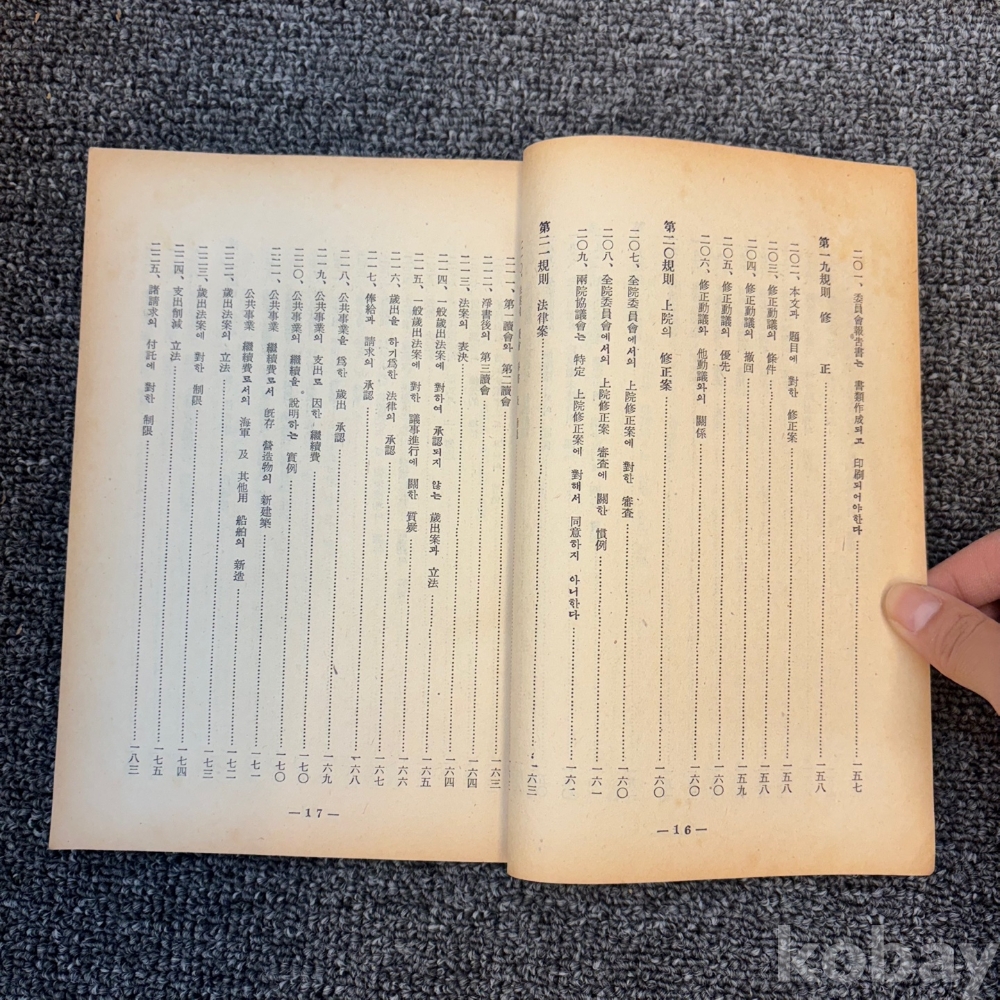 二〇一、委員會報告書는 書類作成되고 印刷되어야한다…一五七
第一九規則 修 正…一五八
二〇二、本文과 題目에 對한 修正案…一五八
二〇三、修正動議의 條件…一五八
二〇四、修正動議의 撤回…一五九
二〇五、修正動議의 優先…一六〇
二〇六、修正動議와 他動議와의 關係…一六〇
第二〇規則 上院의 修正案…一六〇
二〇七、全院委員會에서의 上院修正案에 對한 審査…一六〇
二〇八、全院委員會에서의 上院修正案 審査에 關한 慣例…一六一
二〇九、兩院協議會는 特定 上院修正案에 對해서 同意하지 아니한다…一六一
第二一規則 法律案…一六三
二一一、第一讀會와 第二讀會…一六三
二一二、淨書後의 第三讀會…一六四
二一三、法案의 表決…一六四
二一四、一般歲出法案에 對하여 承認되지 않는 歲出案과 立法…一六五
二一五、一般歲出法案에 對한 議事進行에 關한 質疑…一六六
二一六、歲出을 하기爲한 法律의 承認…一六七
二一七、俸給과 請求의 承認…一六八
二一八、公共事業을 爲한 歲出 承認…一六九
二一九、公共事業의 支出로 因한 繼續費…一七〇
二二〇、公共事業의 繼續을 說明하는 實例…一七〇
二二一、公共事業 繼續費로서 旣存 營造物의 新建築…一七一
公共事業 繼續費로서의 海軍 及 其他用 船舶의 新造…一七二
二二二、歲出法案의 立法…一七三
二二三、歲出法案에 對한 制限…一七四
二二四、支出削減 立法…一七五
二二五、諸請求의 付託에 對한 制限…一八三
—16—
—17—
kobay